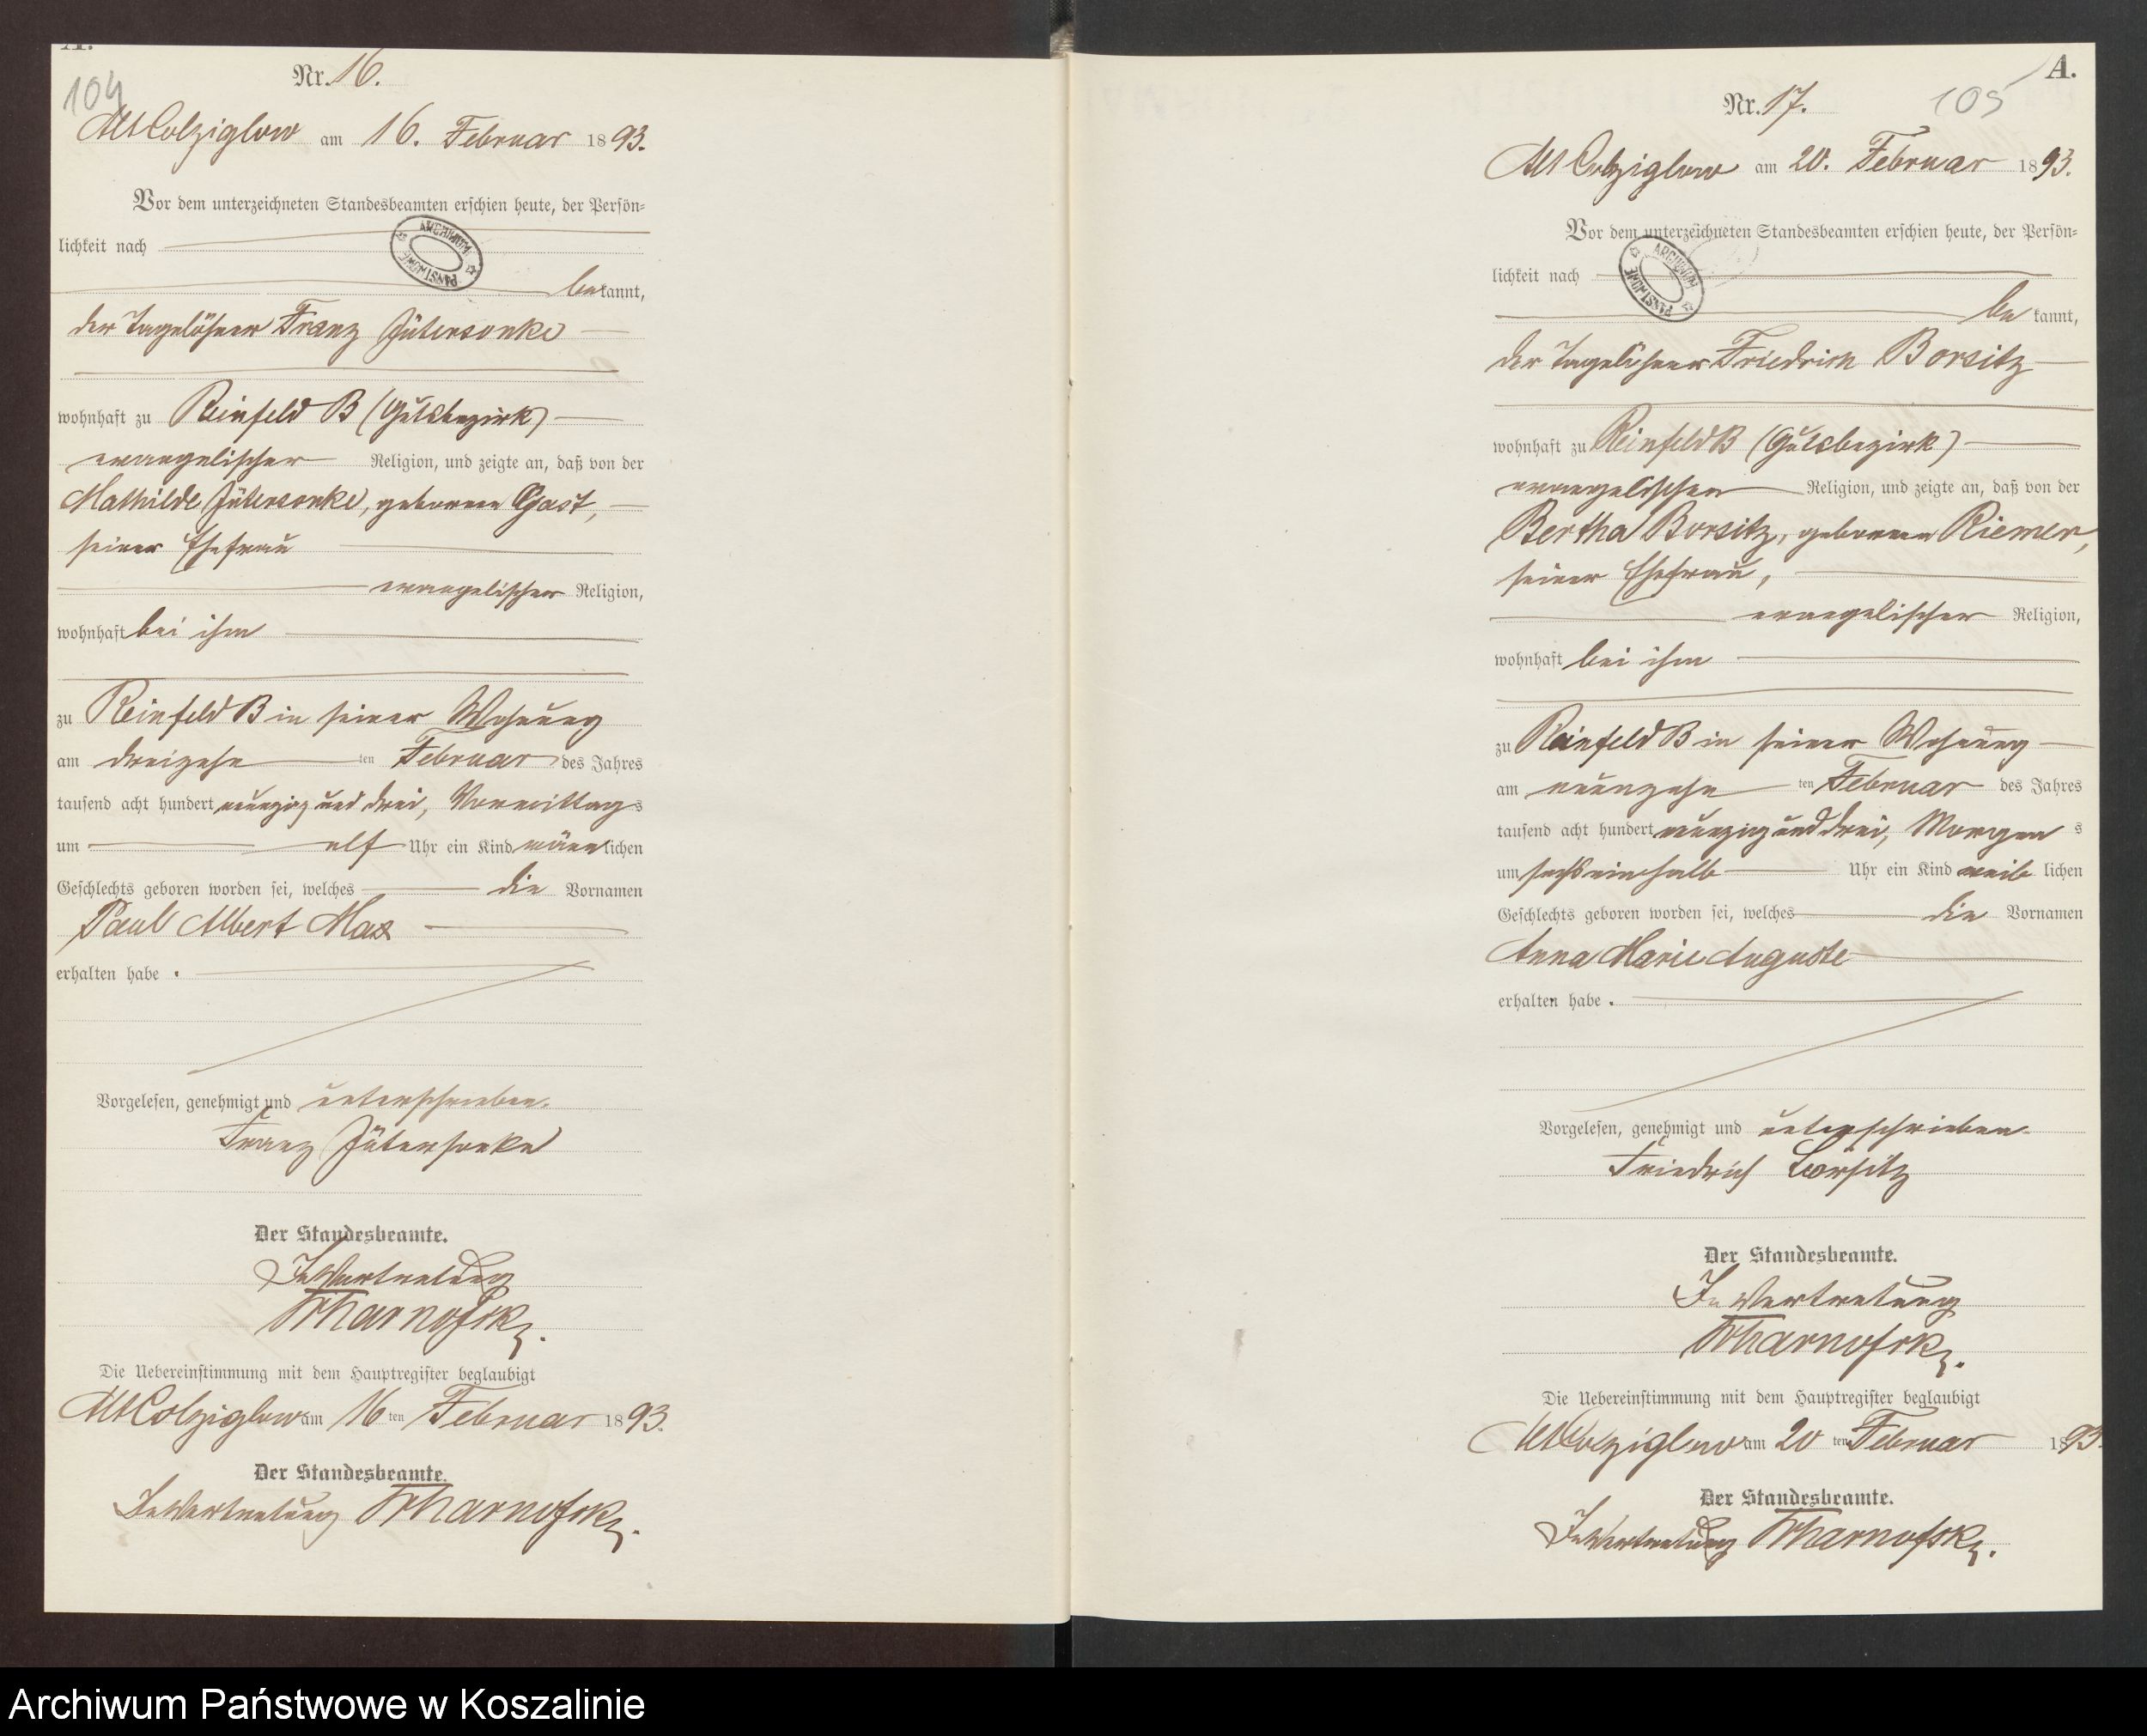 A.
104
Nr. 16.
Alt Colziglow am 16. Februar 1893.
Vor dem unterzeichneten Standesbeamten erschien heute, der Persön-
lichkeit nach
bekannt,
der Tagelöhner Franz Jütersonke
wohnhaft zu Reinfeld B (Gutsbezirk)
evangelischer Religion, und zeigte an, daß von der
Mathilde Jütersonke, geborenen Gast,
seiner Ehefrau
evangelischer Religion,
wohnhaft bei ihm
zu Reinfeld B in seiner Wohnung
am dreizehnten Februar des Jahres
tausend acht hundert neunzig und drei, Vormittags
um elf Uhr ein Kind männlichen
Geschlechts geboren worden sei, welches die Vornamen
Paul Albert Max
erhalten habe.
Vorgelesen, genehmigt und unterschrieben.
Franz Jütersonke
Der Standesbeamte.
In Vertretung
Die Uebereinstimmung mit dem Hauptregister beglaubigt
Alt Colziglow am 16ten Februar 1893.
Der Standesbeamte.
In Vertretung
ARCHIWUM PAŃSTWOWE
A.
105
Nr. 17.
Alt Colziglow am 20. Februar 1893.
Vor dem unterzeichneten Standesbeamten erschien heute, der Persön-
lichkeit nach
bekannt,
der Tagelöhner Friedrich Borsitz
wohnhaft zu Reinfeld B (Gutsbezirk)
evangelischer Religion, und zeigte an, daß von der
Bertha Borsitz, geborenen Riemer,
seiner Ehefrau,
evangelischer Religion,
wohnhaft bei ihm
zu Reinfeld B in seiner Wohnung
am neunzehnten Februar des Jahres
tausend acht hundert neunzig und drei, Morgens
um sechseinhalb Uhr ein Kind weiblichen
Geschlechts geboren worden sei, welches die Vornamen
Anna Marie Auguste
erhalten habe.
Vorgelesen, genehmigt und unterschrieben
Friedrich Borsitz
Der Standesbeamte.
In Vertretung
Die Uebereinstimmung mit dem Hauptregister beglaubigt
Alt Colziglow am 20ten Februar 1893.
Der Standesbeamte.
In Vertretung
ARCHIWUM PAŃSTWOWE
Archiwum Państwowe w Koszalinie